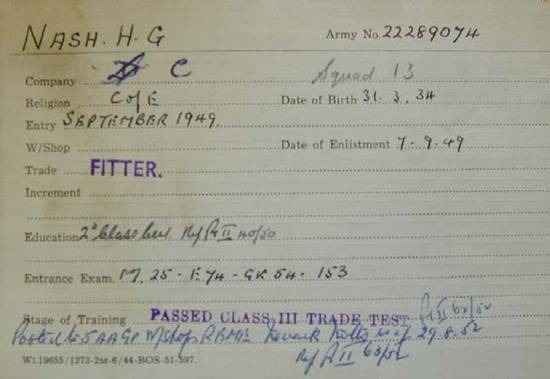 NASH. H. G Army No. 22289074
Company C Squad 13
Religion C of E Date of Birth 31. 3. 34
Entry SEPTEMBER 1949.
W/Shop Date of Enlistment 7-9-49
Trade FITTER.
Increment
Education 2d Class Cert. Ref Pt II 40/50
Entrance Exam. M. 25 - E 74 - GK 54 - 153
Stage of Training PASSED CLASS III TRADE TEST Pt II 63/52
Posted to 5 AA GP W/Shop REME Newark Notts w.e.f 29.8.52
Ref Pt II 63/52
Wt.19655/1273-2m-6/44-BOS-51-597.